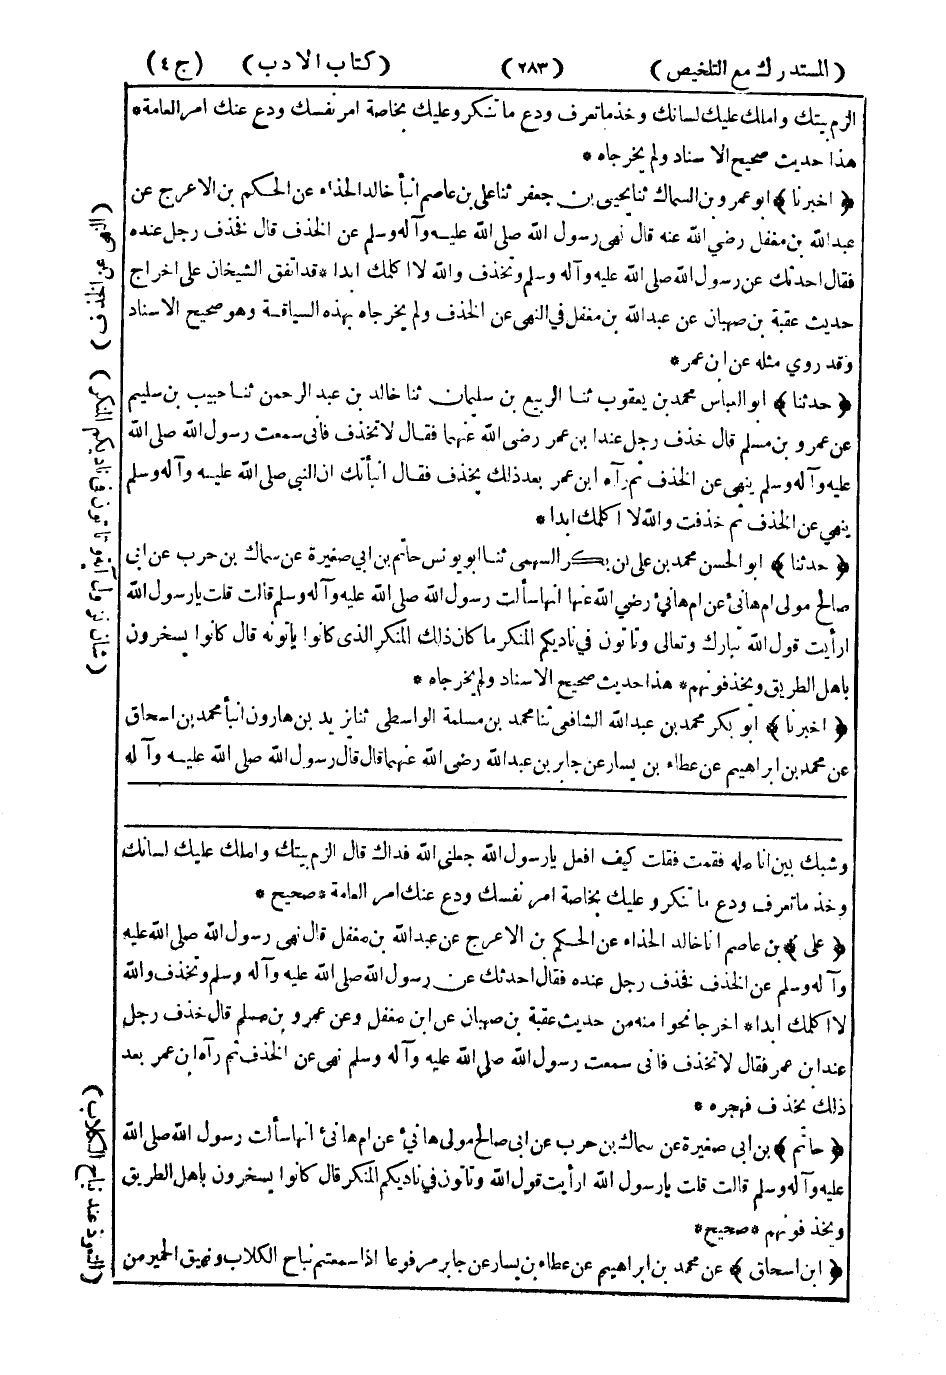 (المستدرك مع التلخيص) (٢٨٣) (كتاب الادب) (ج ٤)
الزم بيتك واملك عليك لسانك وخذ ما تعرف ودع ما تنكر وعليك بخاصة امر نفسك ودع عنك امر العامة *
هذا حديث صحيح الاسناد ولم يخرجاه *
﴿ اخبرنا ﴾ ابو عمرو بن السماك ثنا يحيى بن جعفر ثنا علي بن عاصم انبأ خالد الحذاء عن الحكم بن الاعرج عن
عبد الله بن مغفل رضي الله عنه قال نهى رسول الله صلى الله عليه وآله وسلم عن الخذف قال فخذف رجل عنده
فقال احدثك عن رسول الله صلى الله عليه وآله وسلم وتخذف والله لا اكلمك ابدا * قد اتفق الشيخان على اخراج
حديث عقبة بن صهبان عن عبد الله بن مغفل في النهى عن الخذف ولم يخرجاه بهذه السياقة وهو صحيح الاسناد
وقد روي مثله عن ابن عمر *
﴿ حدثنا ﴾ ابو العباس محمد بن يعقوب ثنا الربيع بن سليمان ثنا خالد بن عبد الرحمن ثنا حبيب بن سليم
عن عمرو بن مسلم قال خذف رجل عند ابن عمر رضي الله عنهما فقال لا تخذف فانى سمعت رسول الله صلى الله
عليه وآله وسلم ينهى عن الخذف ثم رآه ابن عمر بعد ذلك يخذف فقال انبأتك ان النبي صلى الله عليه وآله وسلم
ينهى عن الخذف ثم خذفت والله لا اكلمك ابدا *
﴿ حدثنا ﴾ ابو الحسن محمد بن علي بن بكر السهمي ثنا ابو يونس حاتم بن ابي صغيرة عن سماك بن حرب عن ابى
صالح مولى ام هانئ عن ام هانئ رضي الله عنها انها سألت رسول الله صلى الله عليه وآله وسلم قالت قلت يا رسول الله
ارأيت قول الله تبارك وتعالى وتاتون في ناديكم المنكر ما كان ذلك المنكر الذى كانوا يأتونه قال كانوا يسخرون
باهل الطريق ويخذفونهم * هذا حديث صحيح الاسناد ولم يخرجاه *
﴿ اخبرنا ﴾ ابو بكر محمد بن عبد الله الشافعي ثنا محمد بن مسلمة الواسطى ثنا يزيد بن هارون انبأ محمد بن اسحاق
عن محمد بن ابراهيم عن عطاء بن يسار عن جابر بن عبد الله رضي الله عنهما قال قال رسول الله صلى الله عليه وآله
وشبك بين انامله فقمت فقلت كيف افعل يا رسول الله جعلنى الله فداك قال الزم بيتك واملك عليك لسانك
وخذ ما تعرف ودع ما تنكر وعليك بخاصة امر نفسك ودع عنك امر العامة * صحيح *
﴿ على ﴾ بن عاصم انا خالد الحذاء عن الحكم بن الاعرج عن عبد الله بن مغفل قال نهى رسول الله صلى الله عليه
وآله وسلم عن الخذف فخذف رجل عنده فقال احدثك عن رسول الله صلى الله عليه وآله وسلم وتخذف والله
لا اكلمك ابدا * اخرجا نحوا منه من حديث عقبة بن صهبان عن ابن مغفل وعن عمرو بن مسلم قال خذف رجل
عند ابن عمر فقال لا تخذف فانى سمعت رسول الله صلى الله عليه وآله وسلم نهى عن الخذف ثم رآه ابن عمر بعد
ذلك يخذف فهجره *
﴿ حاتم ﴾ بن ابى صغيرة عن سماك بن حرب عن ابى صالح مولى هانئ عن ام هانئ انها سألت رسول الله صلى الله
عليه وآله وسلم قالت قلت يا رسول الله ارأيت قول الله وتاتون في ناديكم المنكر قال كانوا يسخرون باهل الطريق
ويخذفونهم * صحيح *
﴿ ابن اسحاق ﴾ عن محمد بن ابراهيم عن عطاء بن يسار عن جابر مرفوعا اذا سمعتم نباح الكلاب ونهيق الحمير من
(شان نزول آية وتاتون في ناديكم المنكر)
(التعوذ عند نباح الكلاب)